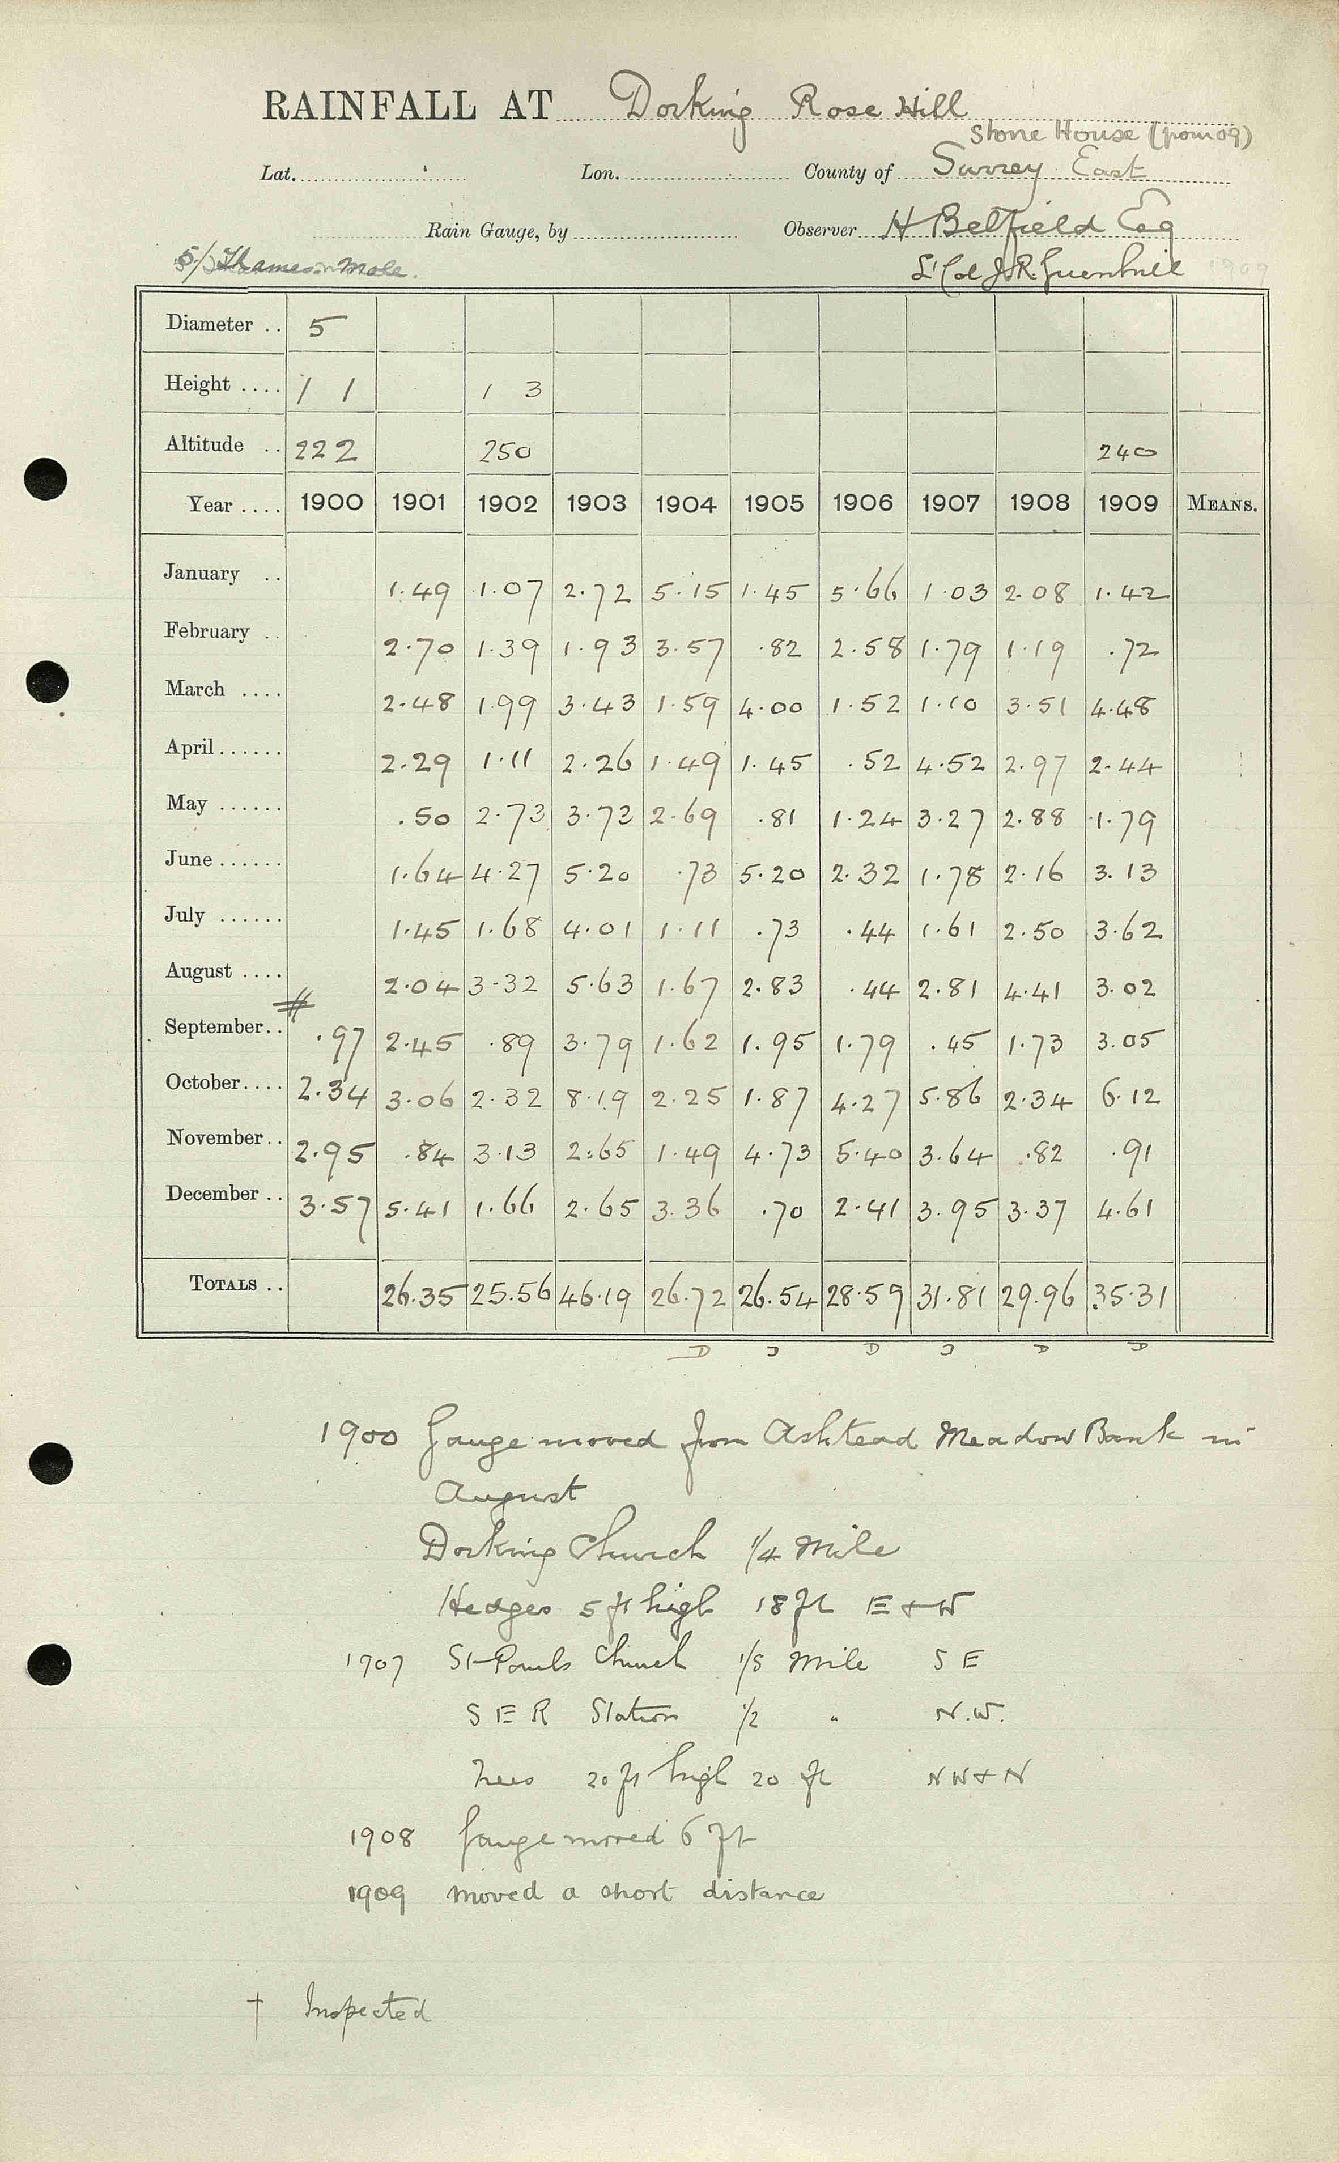 RAINFALL AT Dorking Rose Hill
Stone House (from 09)
Lat. Lon. County of Surrey East
Rain Gauge, by Observer H Belfield Esq
5/ Thames Mole. Lt Col J. R. Greenhill 1909
Diameter .. 5
Height .... 1 1 1 3
Altitude .. 222 250 240
Year .... 1900 1901 1902 1903 1904 1905 1906 1907 1908 1909 MEANS.
January .. 1.49 1.07 2.72 5.15 1.45 5.66 1.03 2.08 1.42
February .. 2.70 1.39 1.93 3.57 .82 2.58 1.79 1.19 .72
March .... 2.48 1.99 3.43 1.59 4.00 1.52 1.10 3.51 4.48
April...... 2.29 1.11 2.26 1.49 1.45 .52 4.52 2.97 2.44
May ...... .50 2.73 3.73 2.69 .81 1.24 3.27 2.88 1.79
June ...... 1.64 4.27 5.20 .73 5.20 2.32 1.78 2.16 3.13
July ...... 1.45 1.68 4.01 1.11 .73 .44 1.61 2.50 3.62
August .... 2.04 3.32 5.63 1.67 2.83 .44 2.81 4.41 3.02
September.. .97 2.45 .89 3.79 1.62 1.95 1.79 .45 1.73 3.05
October.... 2.34 3.06 2.32 8.19 2.25 1.87 4.27 5.86 2.34 6.12
November.. 2.95 .84 3.13 2.65 1.49 4.73 5.40 3.64 .82 .91
December .. 3.57 5.41 1.66 2.65 3.36 .70 2.41 3.95 3.37 4.61
TOTALS .. 26.35 25.56 46.19 26.72 26.54 28.59 31.81 29.96 35.31
D D D D D
1900 Gauge moved from Ashtead Meadow Bank in
August
Dorking Church 1/4 Mile
Hedges 5 ft high 18 ft E & W
1907 St Pauls Church 1/5 Mile S E
S E R Station 1/2 " N.W.
Trees 20 ft high 20 ft N W & N
1908 Gauge moved 6 ft
1909 moved a short distance
† Inspected